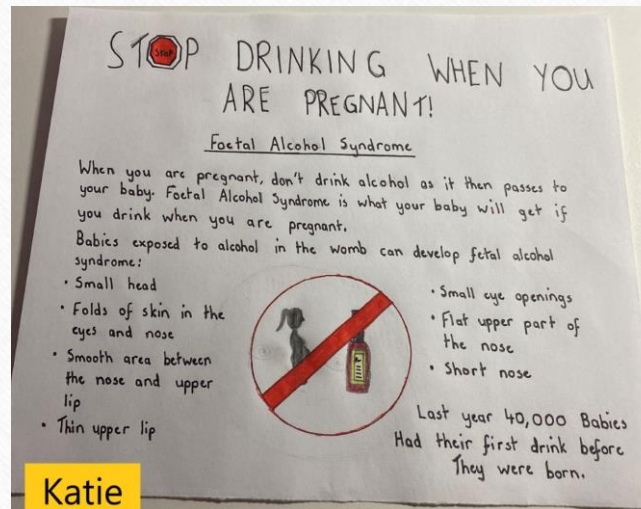 STOP DRINKING WHEN YOU
ARE PREGNANT!
Foetal Alcohol Syndrome
When you are pregnant, don't drink alcohol as it then passes to
your baby. Foetal Alcohol Syndrome is what your baby will get if
you drink when you are pregnant.
Babies exposed to alcohol in the womb can develop fetal alcohol
syndrome:
• Small head
• Folds of skin in the
eyes and nose
• Smooth area between
the nose and upper
lip
• Thin upper lip
• Small eye openings
• Flat upper part of
the nose
• Short nose
Last year 40,000 Babies
Had their first drink before
They were born.
Katie